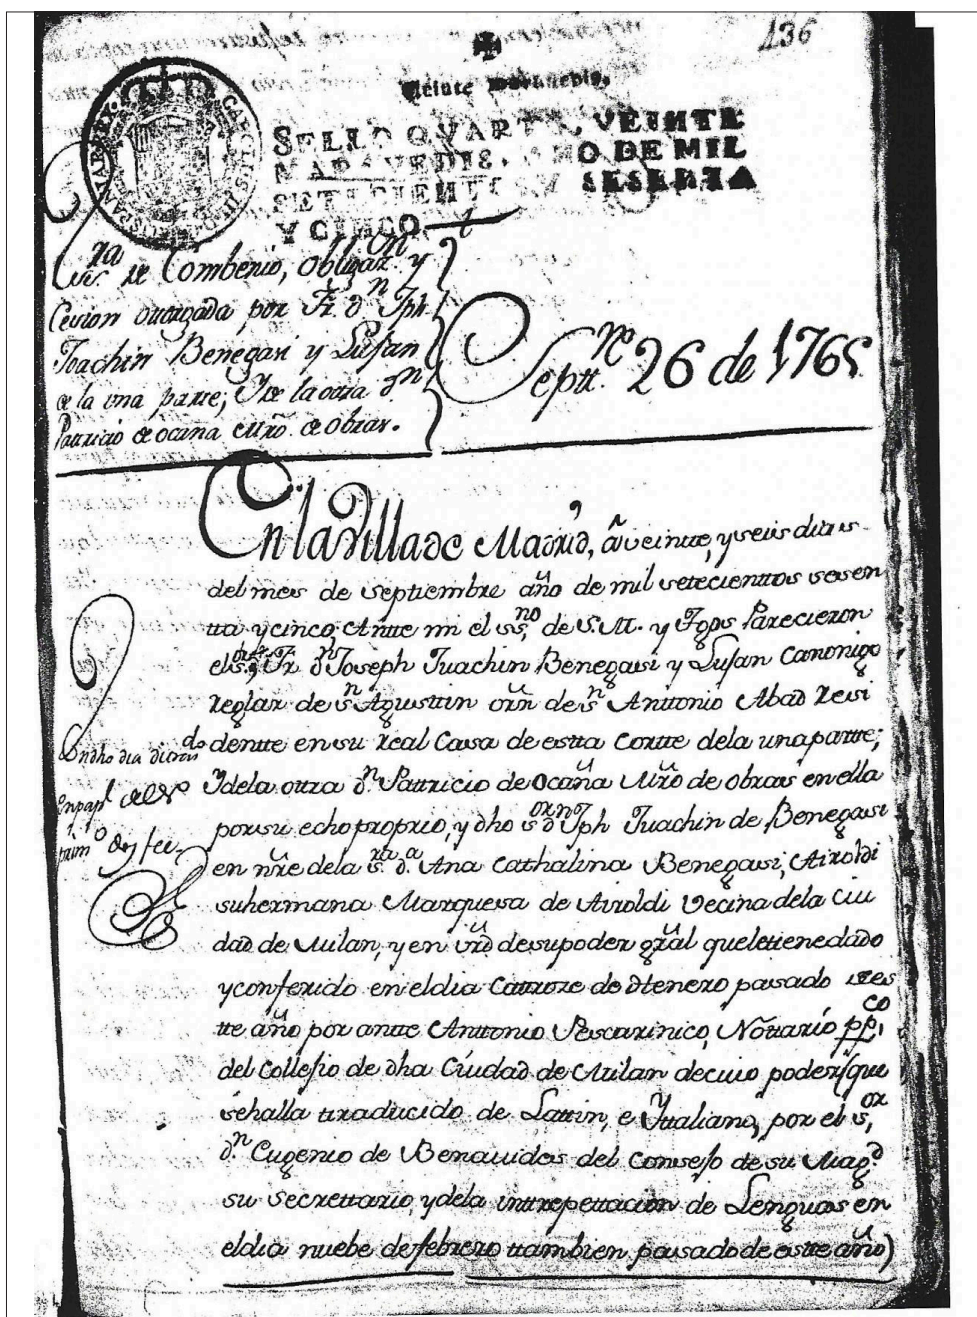 136
Veinte maravedis.
SELLO QVARTO, VEINTE
MARAVEDIS, AÑO DE MIL
SETECIENTOS Y SESENTA
Y CINCO.
CAROLUS III D. G. HISPANIAR REX
Ess.ra de Combenio, obligaz.on y
Cesion otorgada por Fr. dn Jph
Joachin Benegasi y Lujan
de la una parte; Y de la otra dn
Patricio de ocaña Mro. de obras.
Septt.re 26 de 1765
En la Villa de Madrid, à veinte, y seis dias
del mes de septiembre año de mil setecienttos sesen
tta y cinco, Antte mi el ss.no de S.M. y Tgos Parecieron
el s.or Fr. dn Joseph Juachin Benegasi y Lujan Canonigo
reglar de sn Agusttin orn de sn Anttonio Abad resi
dentte en su real Casa de estta Cortte de la una partte;
Y de la otra dn Pattricio de Ocaña Mro de obras en ella
por su echo proprio, y dho s.or dn Jph Juachin de Benegasi
en nre de la s.ra d.a Ana Cathalina Benegasi, Airoldi
su hermana Marquesa de Airoldi Vecina de la Ciu
dad de Milan, y en vrd de su poder gral que le ttiene dado
y conferido en el dia Cattorze de henero pasado de es
tte año por antte Anttonio Pescarinico, Nottario pp.co
del Collejio de dha Ciudad de Milan de cuio poder (que
se halla traducido de Lattin, e Yttaliano, por el s.or
dn Eugenio de Benavides del Consejo de su Mag.d
su Secrettario, y de la intrepettacion de Lenguas en
el dia nuebe de febrero ttambien pasado de estte año)
En dho dia di tras.do
En pap.l del s.o
prim.o doy fee